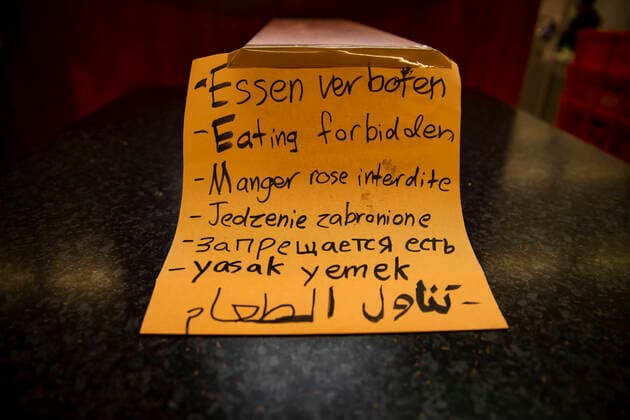 - Essen verboten
- Eating forbidden
- Manger rose interdite
- Jedzenie zabronione
- Запрещается есть
- yasak yemek
- تناول الطعام